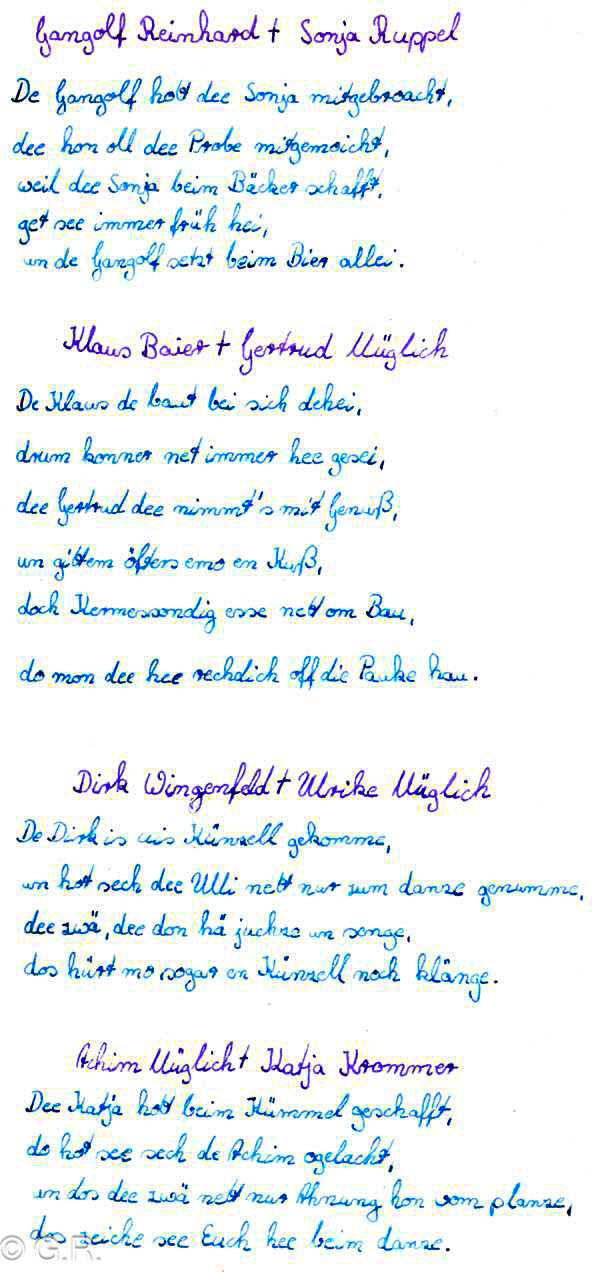 Gangolf Reinhard + Sonja Ruppel
De Gangolf hott dee Sonja mitgebroacht,
dee hon oll dee Probe mitgemoicht,
weil dee Sonja beim Bäcker schafft,
get see immer früh hei,
un de Gangolf setzt beim Bier allei.
Klaus Baier + Gertrud Müglich
De Klaus de baut bei sich dehei,
drum konner net immer hee gesei,
dee Gertrud dee nimmt's mit Genuß,
un gittem öfters emo en Kuß,
doch Kermessondig esse nett om Bau,
do mon dee hee rechdich off die Pauke hau.
Dirk Wingenfeld + Ulrike Müglich
De Dirk is uis Künzell gekomme,
un hot sech dee Ulli nett nur zum danze genumme,
dee zwä, dee don hä juchze un senge,
dos hürt mo sogar en Künzell noch klänge.
Achim Müglich + Katja Krommer
Dee Katja hott beim Kümmel geschafft,
do hot see sech de Achim ogelacht,
un dos dee zwä nett nur Ahnung hon vom planze,
dos zeiche see Euch hee beim danze.
© G.R.